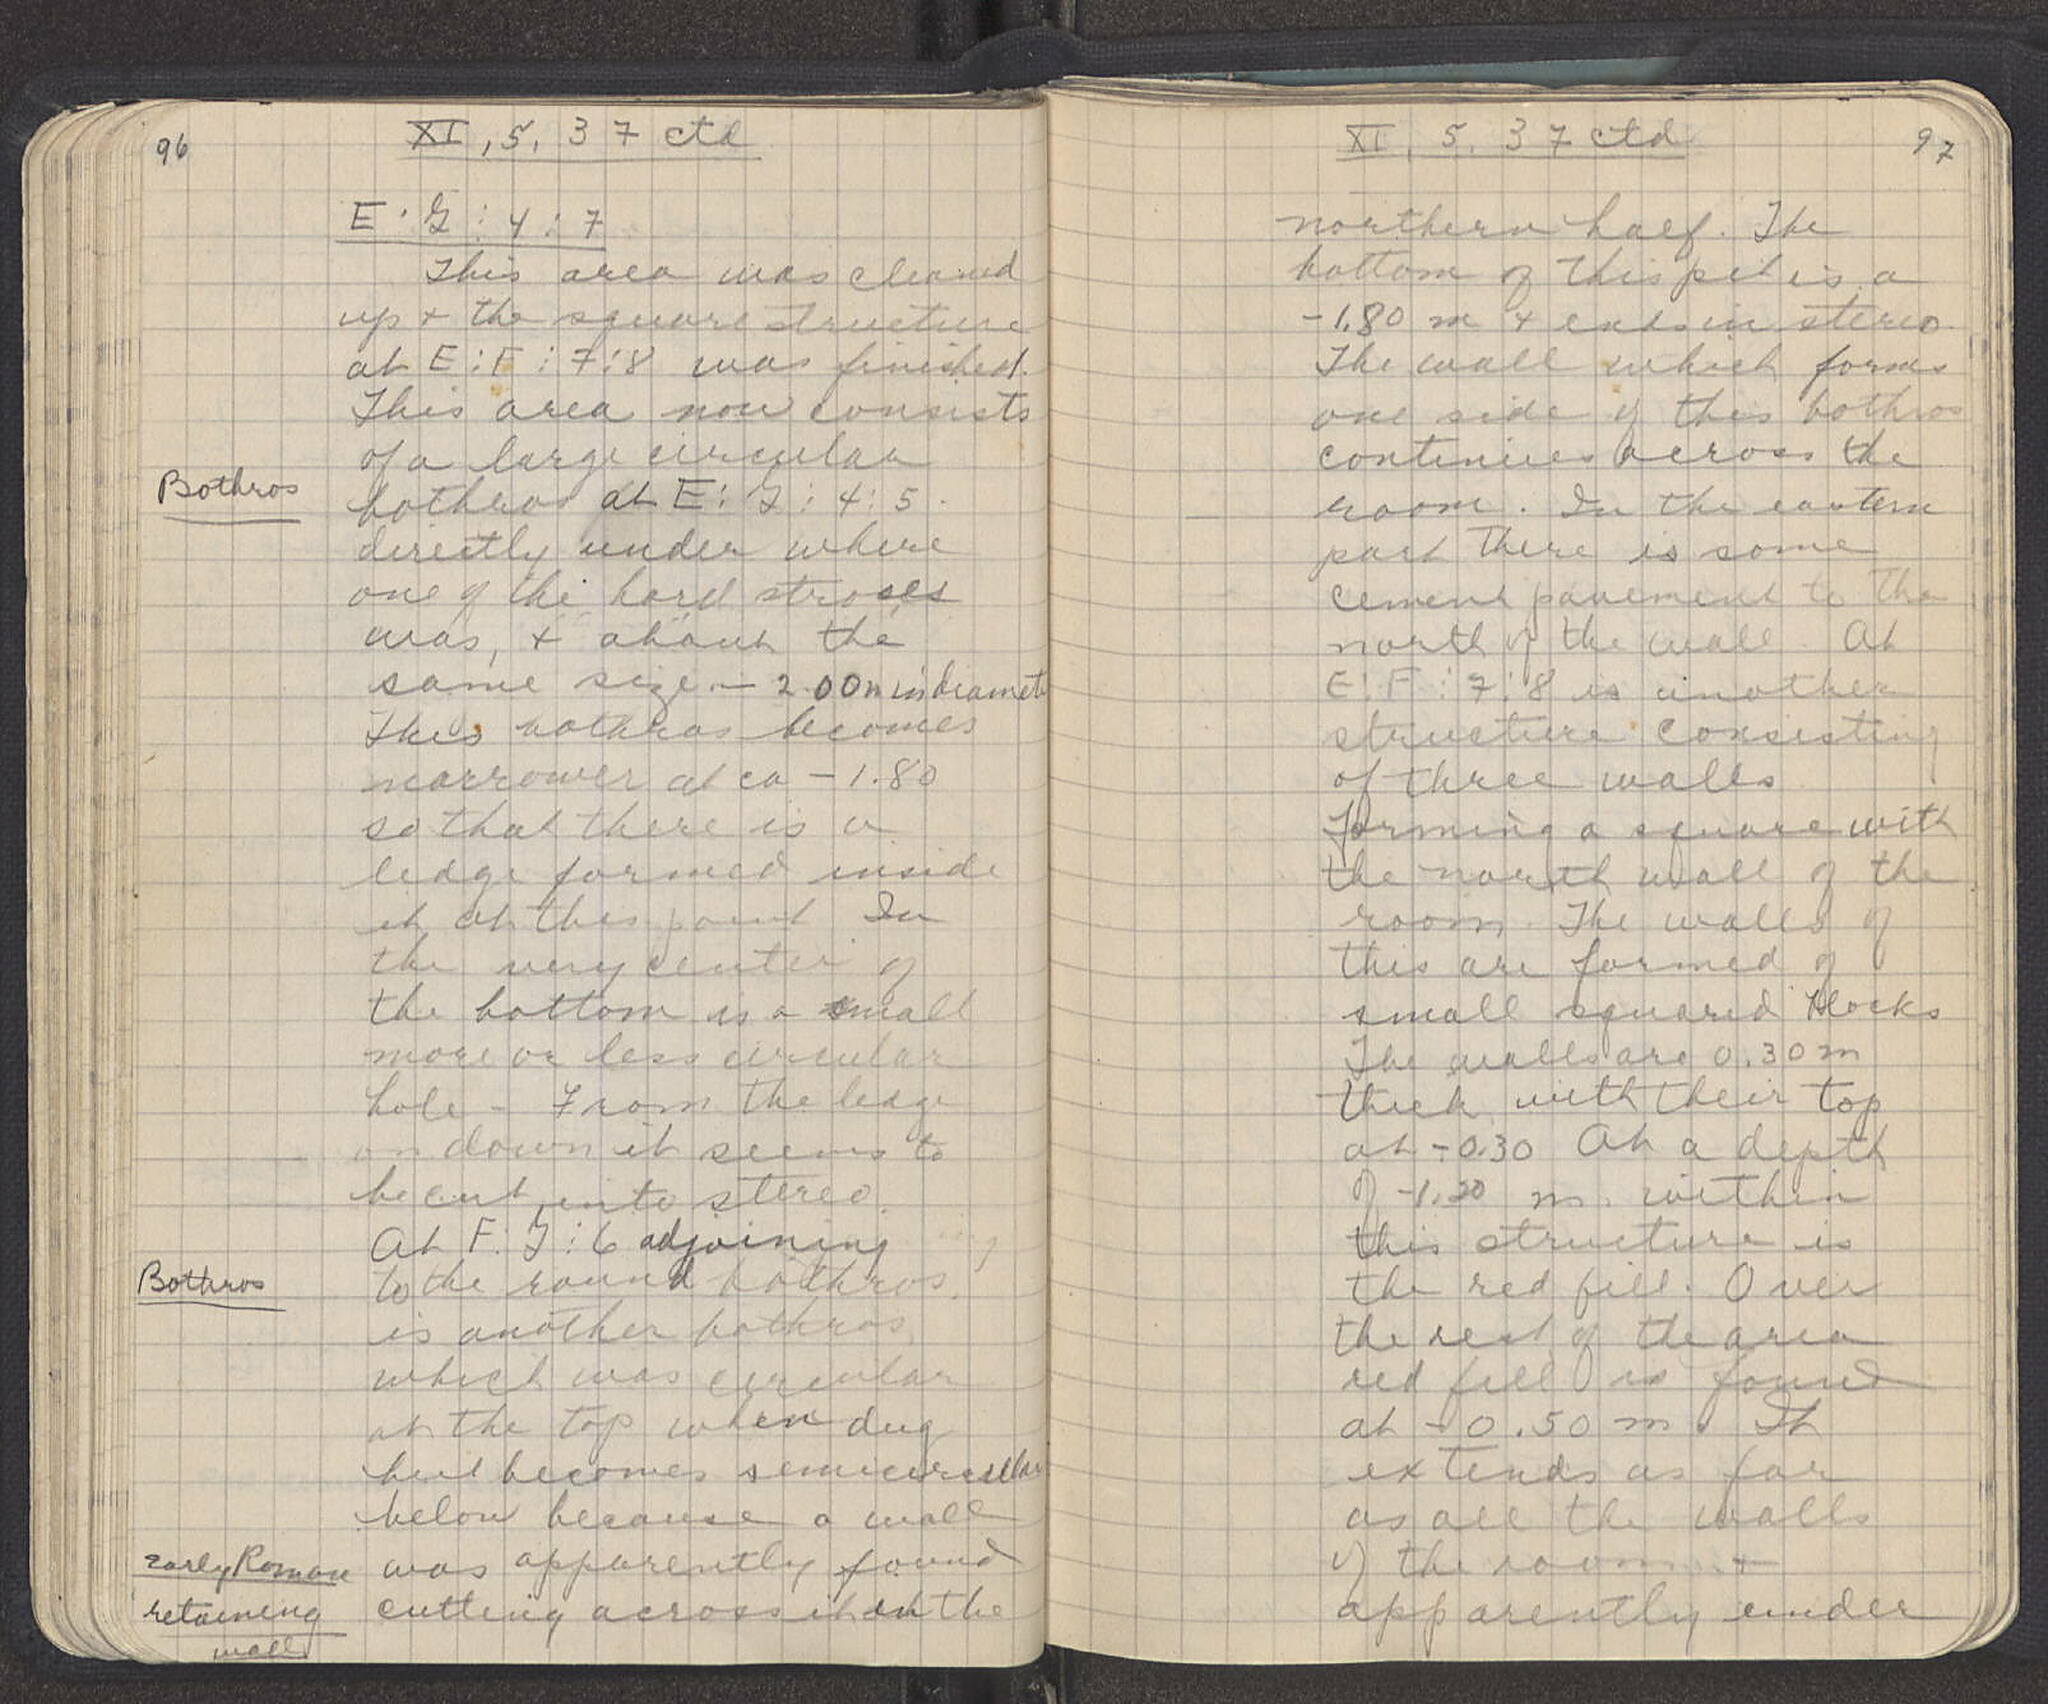 96
XI, 5, 37 ctd
E:G:4:7
This area was cleaned
up + the square structure
at E:F:7:8 was finished.
This area now consists
of a large circular
Bothros
bothros at E:G:4:5.
directly under where
one of the hard stroses
was, + about the
same size – 2.00m in diamet
This bothros becomes
narrower at ca -1.80
so that there is a
ledge formed inside
it at this point In
the very center of
the bottom is a small
more or less circular
hole - From the ledge
on down it seems to
be cut into stereo.
At F:G:6 adjoining
Bothros
to the round bothros.
is another bothros
which was circular
at the top when dug
but becomes semicircular
below because a wall
Early Roman
retaining
wall
was apparently found
cutting across it in the
XI, 5, 37 ctd
97
northern half. The
bottom of this pit is a
-1.80 m + ends in stereo
The wall which forms
one side of this bothros
continues across the
room. In the eastern
part there is some
cement pavement to the
north of the wall. At
E:F:7:8 is another
structure consisting
of three walls
forming a square with
the north wall of the
room. The walls of
this are formed of
small squared blocks
The walls are 0.30m
thick with their top
at -0.30 At a depth
of -1.20 m. within
this structure is
the red fill. Over
the rest of the area
red fill is found
at -0.50 m. It
extends as far
as all the walls
of the room +
apparently under